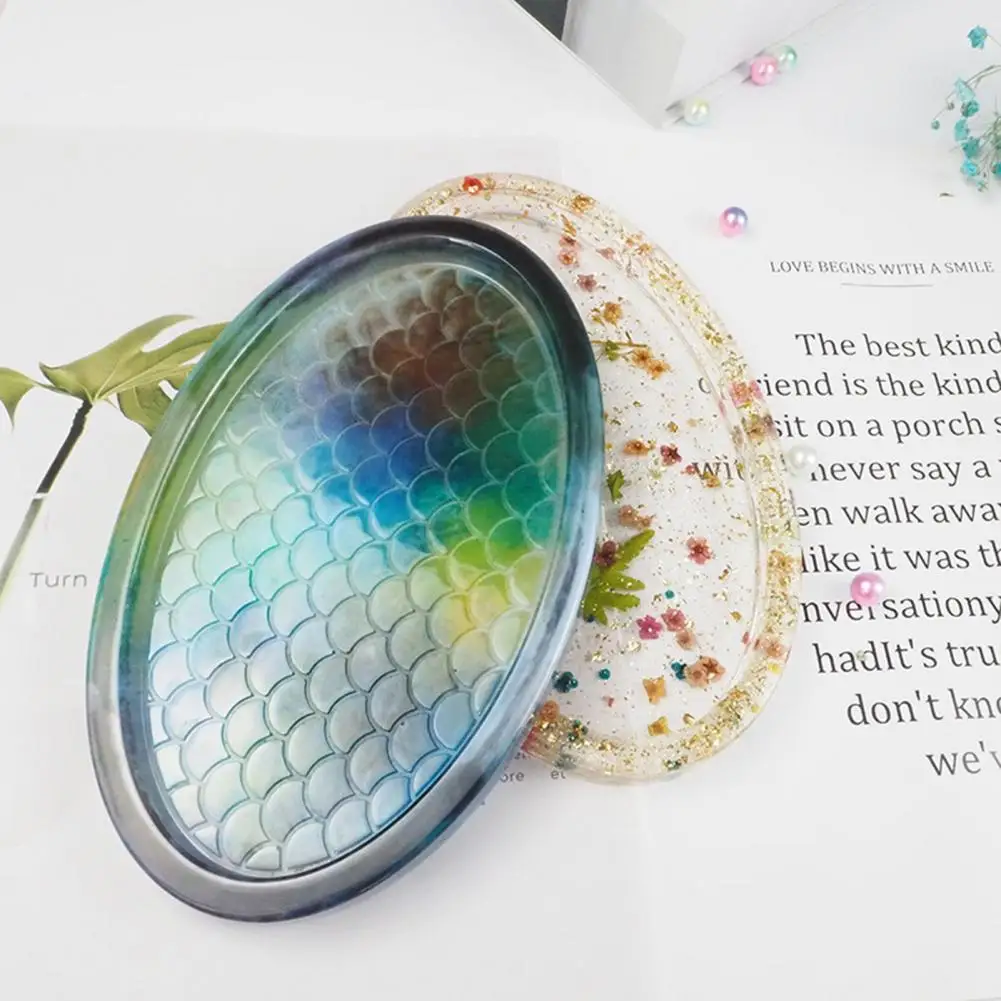 LOVE BEGINS WITH A SMILE
The best kind
riend is the kind
sit on a porch
never say a
en walk awa
like it was th
nversationy
hadIt's tru
don't kno
we'v
Turn
ore et